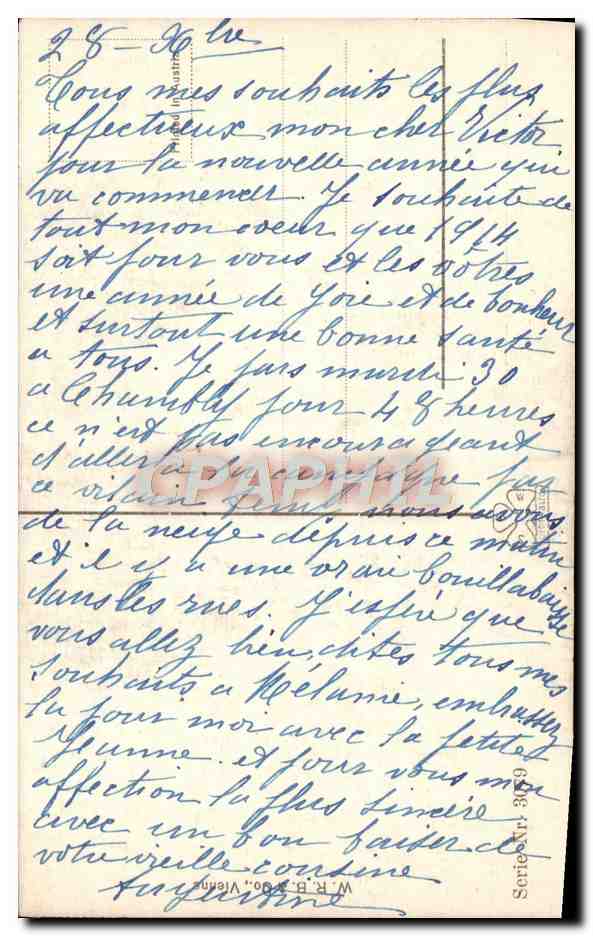 28 - Xbre
Tous mes souhaits les plus
affectueux mon cher Victor
pour la nouvelle année qui
va commencer. Je souhaite de
tout mon coeur que 1914
soit pour vous et les vôtres
une année de joie et de bonheur
et surtout une bonne santé
a tous. Je pars mardi 30
a Chambly pour 48 heures
ce n'est pas encourageant
d'aller a la campagne par
ce vilain temps nous avons
de la neige depuis ce matin
et il y a une vraie bouillabaisse
dans les rues. J'espère que
vous allez bien, dites tous mes
souhaits a Mélanie, embrassez
la pour moi avec la petite
Jeanne. et pour vous mon
affection la plus sincère
avec un bon baiser de
votre vieille cousine
Augustine
Printed in Austria
CPAPHIL
W. R. B. & Co., Vienne
Serie Nr. 3039